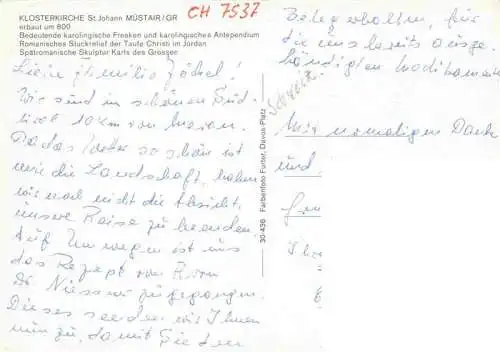 KLOSTERKIRCHE St. Johann MÜSTAIR/GR
erbaut um 800
Bedeutende karolingische Fresken und karolingisches Antependium
Romanisches Stuckrelief der Taufe Christi im Jordan
Spätromanische Skulptur Karls des Grossen
CH 7537
Liebe Familie Jäckel!
Wir sind im schönen Süd-
tirol 10 km von Meran.
Da das Wetter so schön ist
wie die Landschaft, haben
wir noch nicht die Absicht,
unsere Reise zu beenden.
Auf Umwegen ist uns
das Rezept von Herrn
Dr. zugegangen.
Dieses senden wir Ihnen
nun zu, damit Sie den
30-436 Farbenfoto Furter, Davos-Platz
Schweiz
Beleg erhalten, für
die uns bereits ausge-
händigten Medikamente
Mit nochmaligem Dank
und